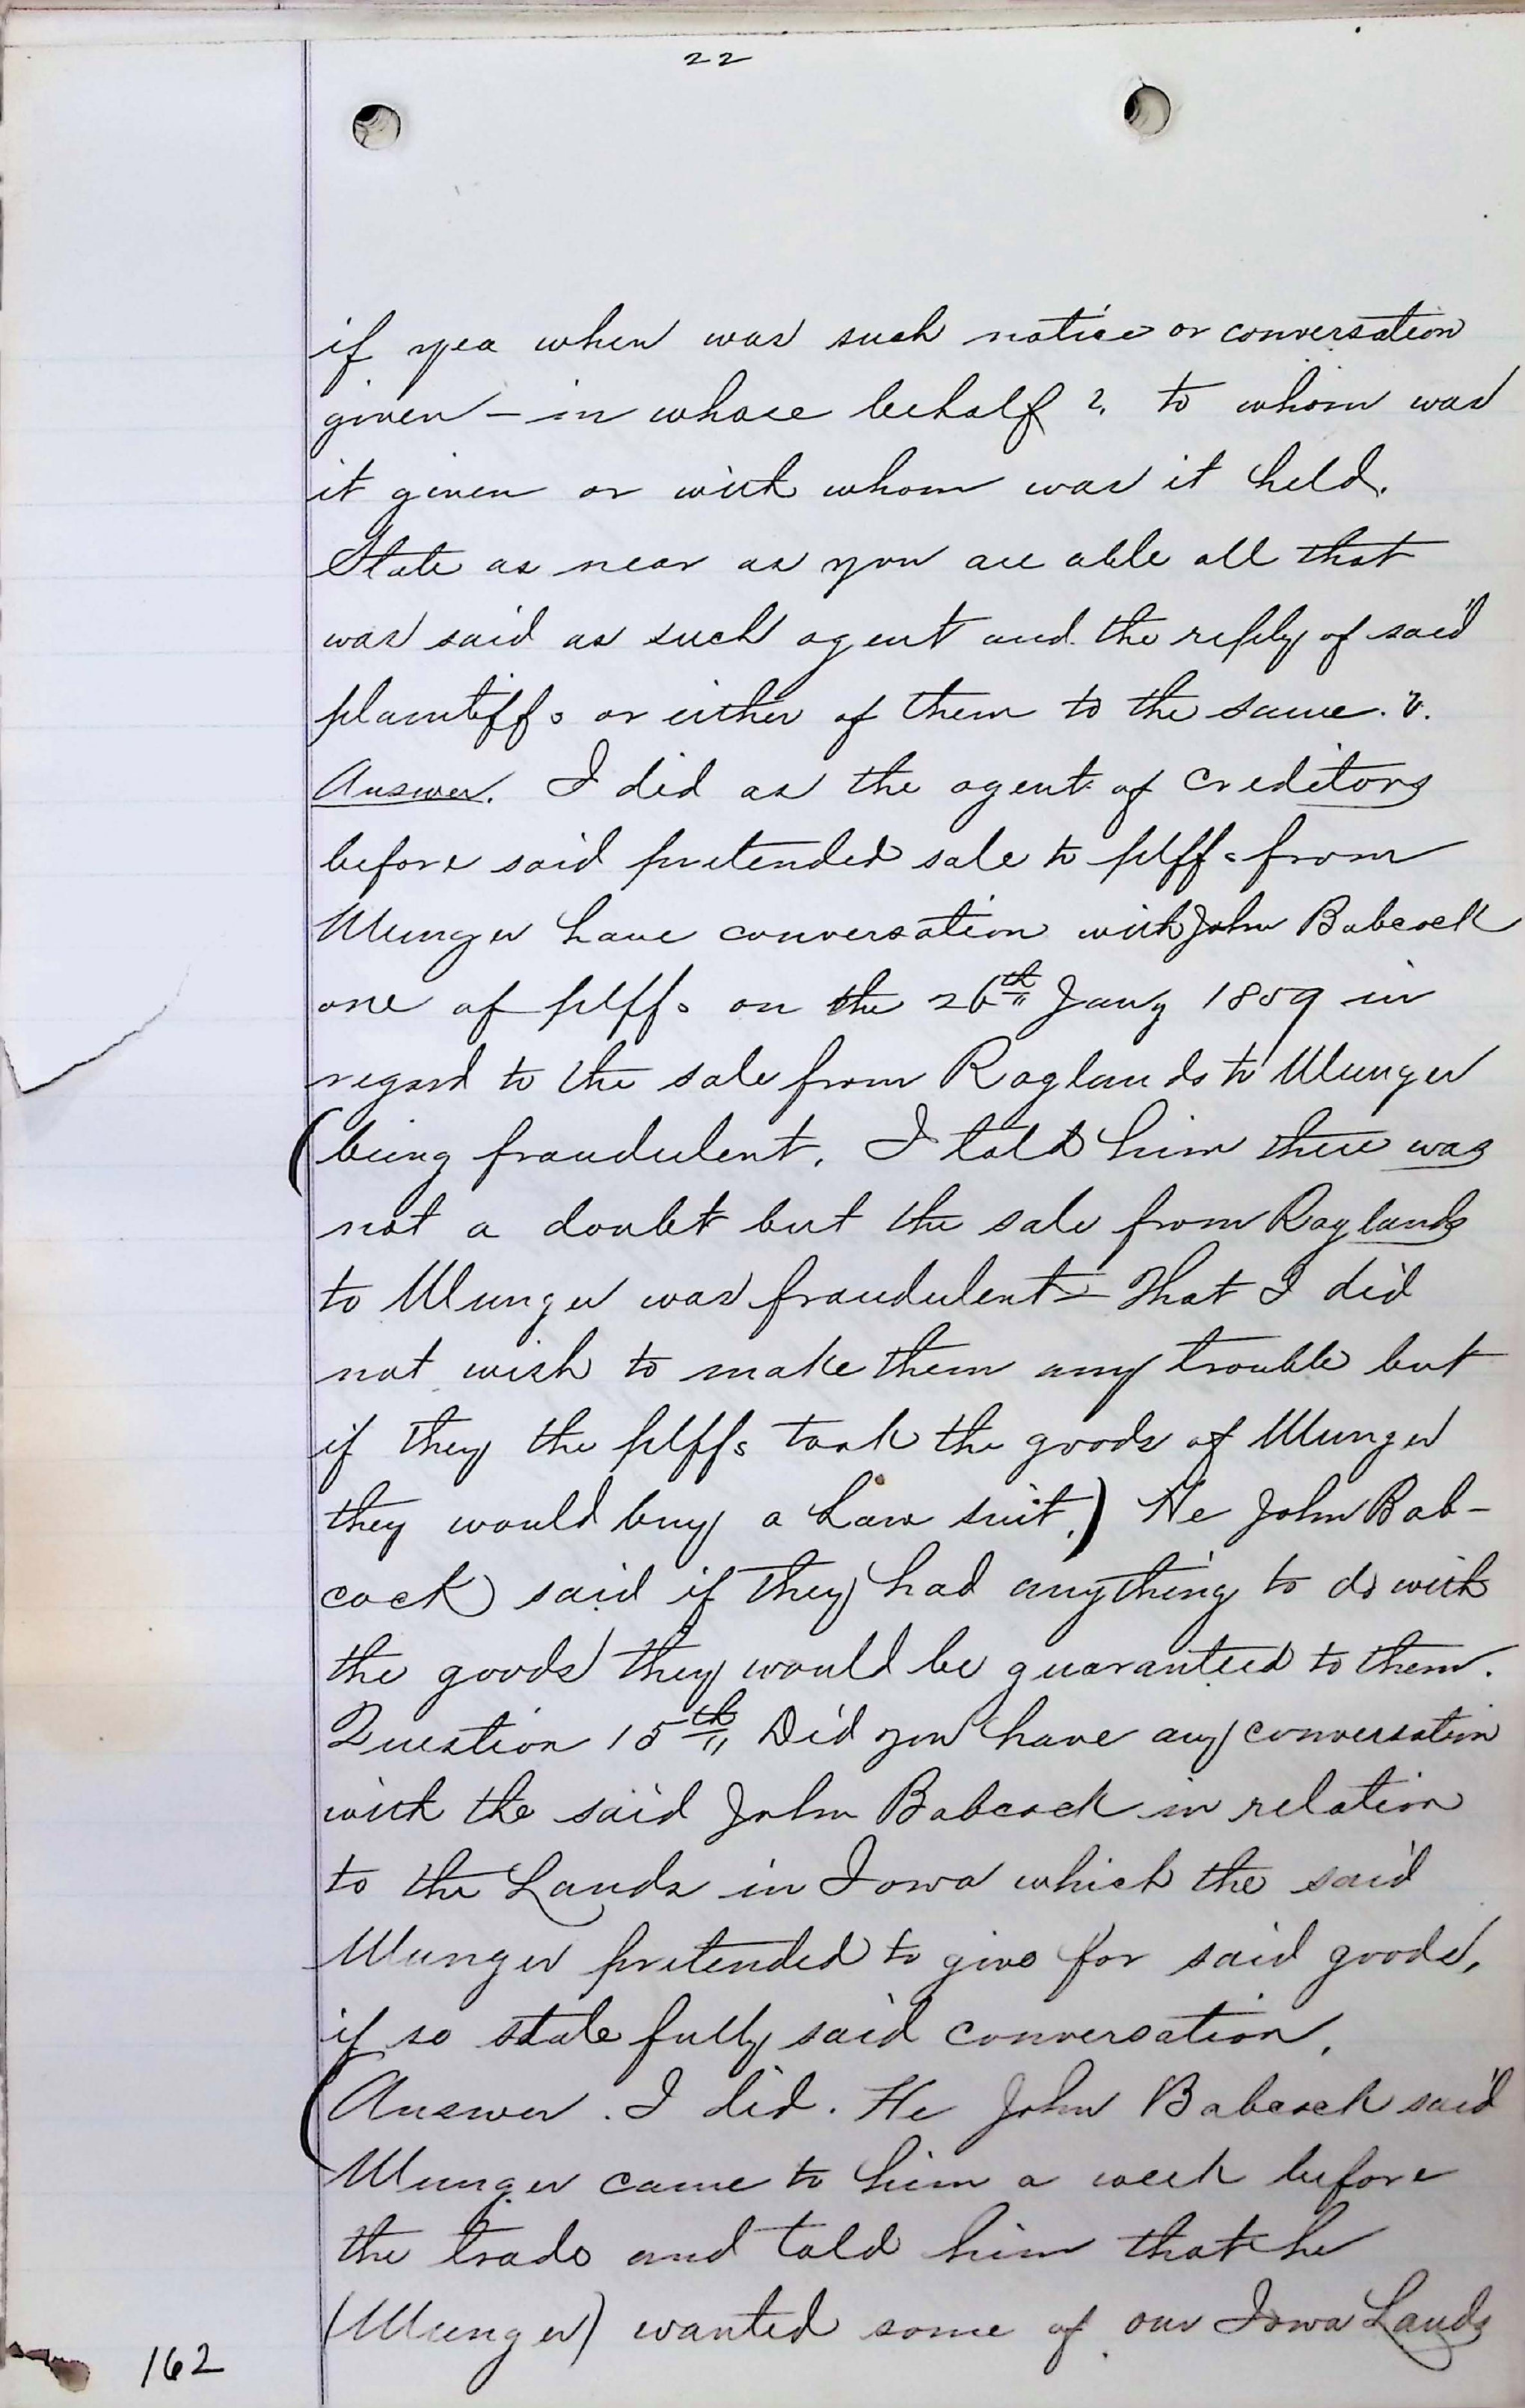 22
if yea when was such notice or conversation
given – in whose behalf? to whom was
it given or with whom was it held.
State as near as you are able all that
was said as such agent and the reply of said
plaintiffs or either of them to the same.?.
Answer. I did as the agent of creditors
before said pretended sale to plffs from
Munger have conversation with John Babcock
one of plffs on the 26th Jany 1859 in
regard to the sale from Raglands to Munger
(being fraudulent. I told him there was
not a doubt but the sale from Raglands
to Munger was fraudulent – That I did
not wish to make them any trouble but
if they the plffs took the goods of Munger
they would buy a Law suit.) He John Bab-
cock said if they had anything to do with
the goods they would be guaranteed to them.
Question 15th Did you have any conversation
with the said John Babcock in relation
to the Lands in Iowa which the said
Munger pretended to give for said goods,
if so state fully said conversation.
(Answer. I did. He John Babcock said
Munger came to him a week before
the trade and told him that he
(Munger) wanted some of our Iowa Lands
162